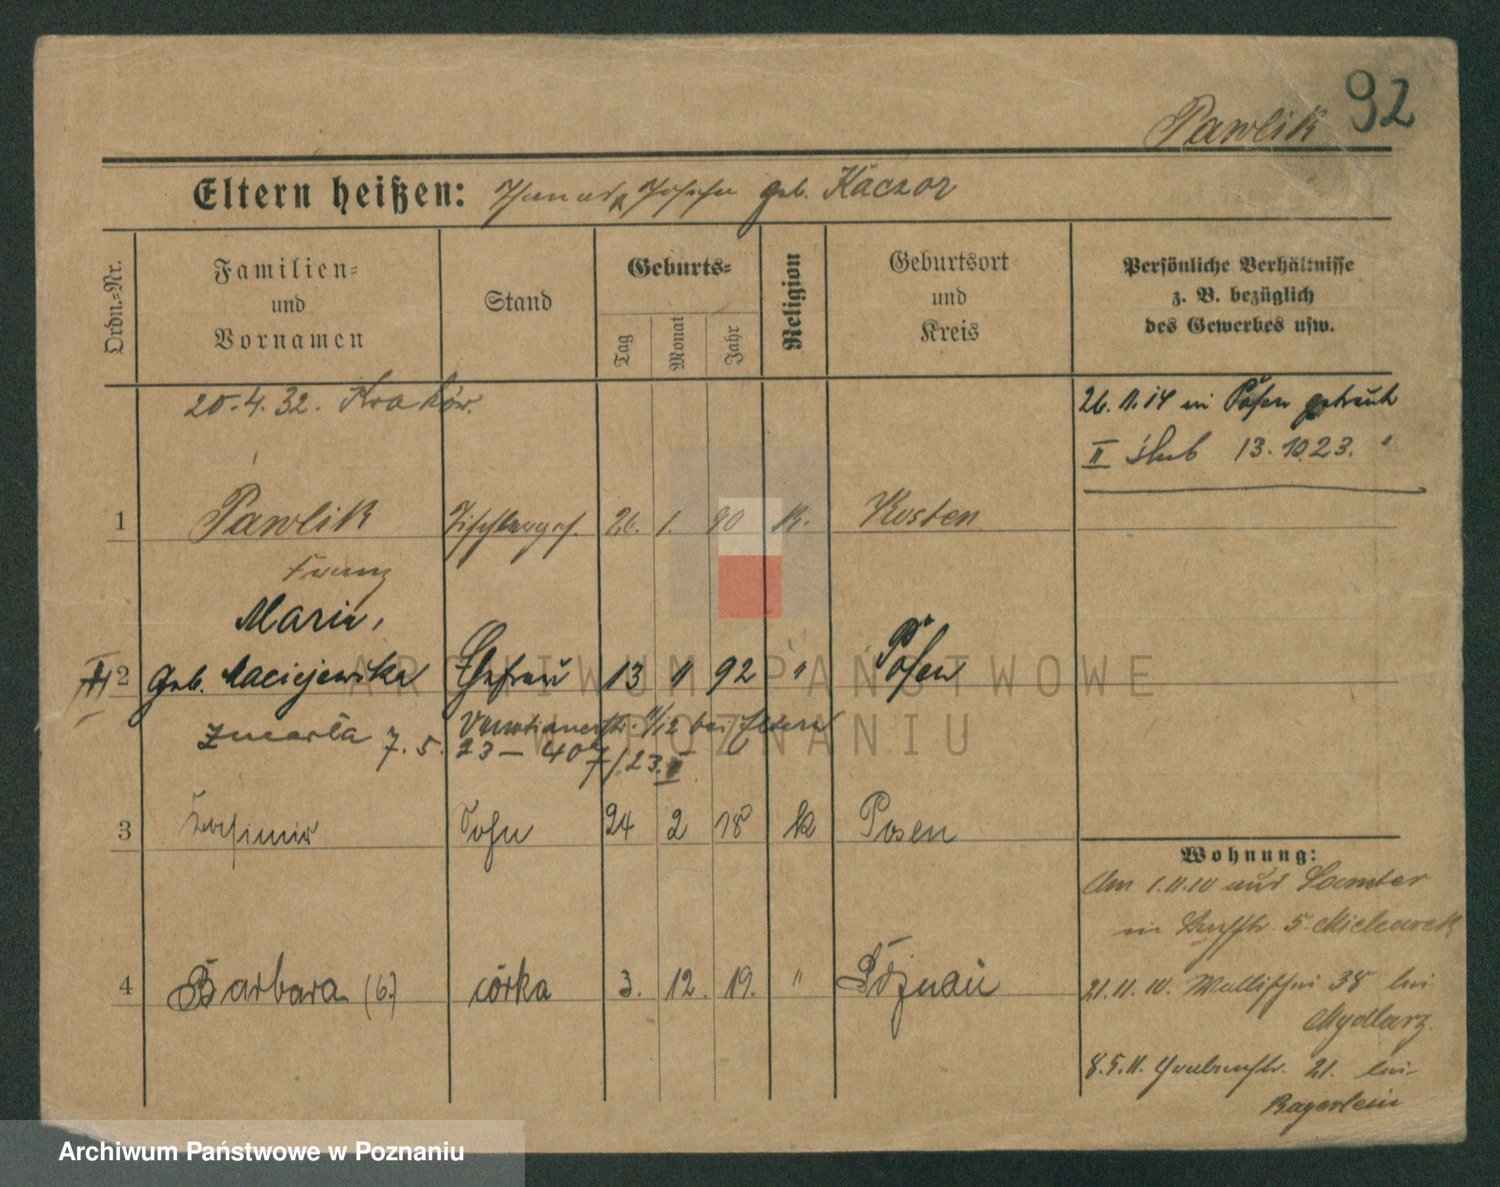 92
Pawlik
Eltern heißen: geb. Kaczor
Ordn.-Nr.
Familien-
und
Vornamen
Stand
Geburts-
Tag
Monat
Jahr
Religion
Geburtsort
und
Kreis
Persönliche Verhältnisse
z. B. bezüglich
des Gewerbes usw.
20.4.32. Kraków.
26.11.14 in Posen getraut
II ślub 13.10.23. "
1 Pawlik 26. 1. 90 k. Kosten
Franz
Marie,
II 2 geb. Maciejewska Ehefrau 13 11 92 " Posen
zmarła 7.5. 11/12 bei Eltern
23 – 407/23.II
3 Kasimir Sohn 24 2 18 k Posen
4 Barbara (6.) córka 3. 12. 19. " Poznań
Wohnung:
Am 1.11.10 aus Samter
in 5. Mielcarek
21.11.10. Wallischei 38 bei
Mydlarz.
8.5.11. Grabenstr. 21. bei
Bagerlein
ARCHIWUM PAŃSTWOWE
W POZNANIU
Archiwum Państwowe w Poznaniu